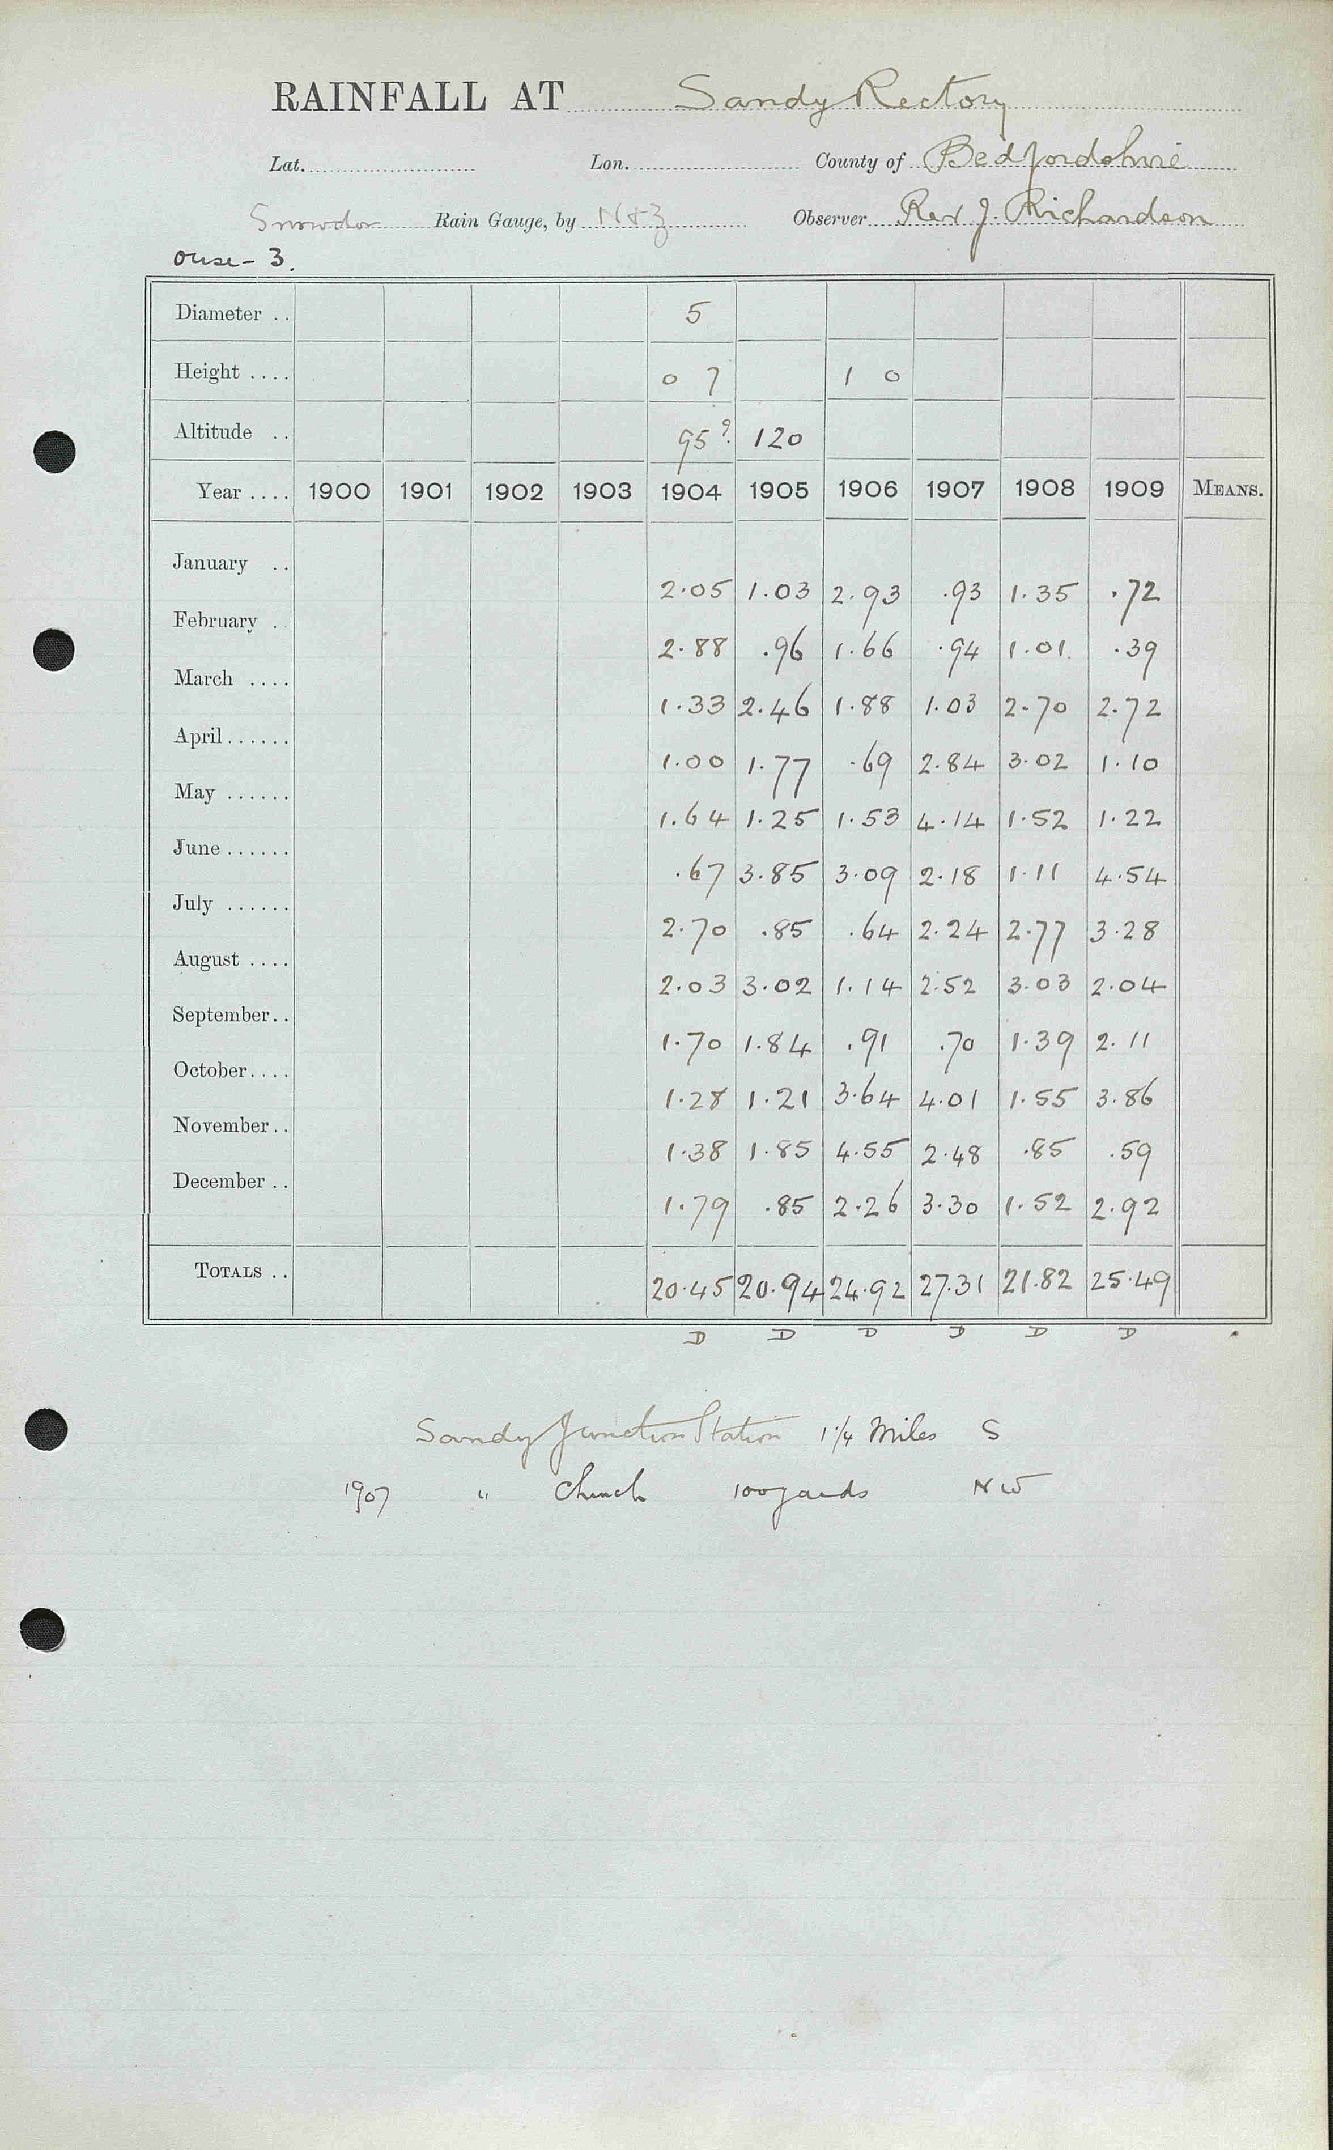 RAINFALL AT Sandy Rectory
Lat. Lon. County of Bedfordshire
Snowdon Rain Gauge, by N&Z Observer Rev J. Richardson
Ouse - 3.
Diameter .. 5
Height .... 0 7 1 0
Altitude .. 95? 120
Year .... 1900 1901 1902 1903 1904 1905 1906 1907 1908 1909 MEANS.
January .. 2.05 1.03 2.93 .93 1.35 .72
February . 2.88 .96 1.66 .94 1.01 .39
March .... 1.33 2.46 1.88 1.03 2.70 2.72
April...... 1.00 1.77 .69 2.84 3.02 1.10
May ...... 1.64 1.25 1.53 4.14 1.52 1.22
June ...... .67 3.85 3.09 2.18 1.11 4.54
July ...... 2.70 .85 .64 2.24 2.77 3.28
August .... 2.03 3.02 1.14 2.52 3.03 2.04
September.. 1.70 1.84 .91 .70 1.39 2.11
October.... 1.28 1.21 3.64 4.01 1.55 3.86
November.. 1.38 1.85 4.55 2.48 .85 .59
December .. 1.79 .85 2.26 3.30 1.52 2.92
TOTALS .. 20.45 20.94 24.92 27.31 21.82 25.49
D D D D D D
Sandy Junction Station 1 1/4 Miles S
1907 " Church 100 yards NW